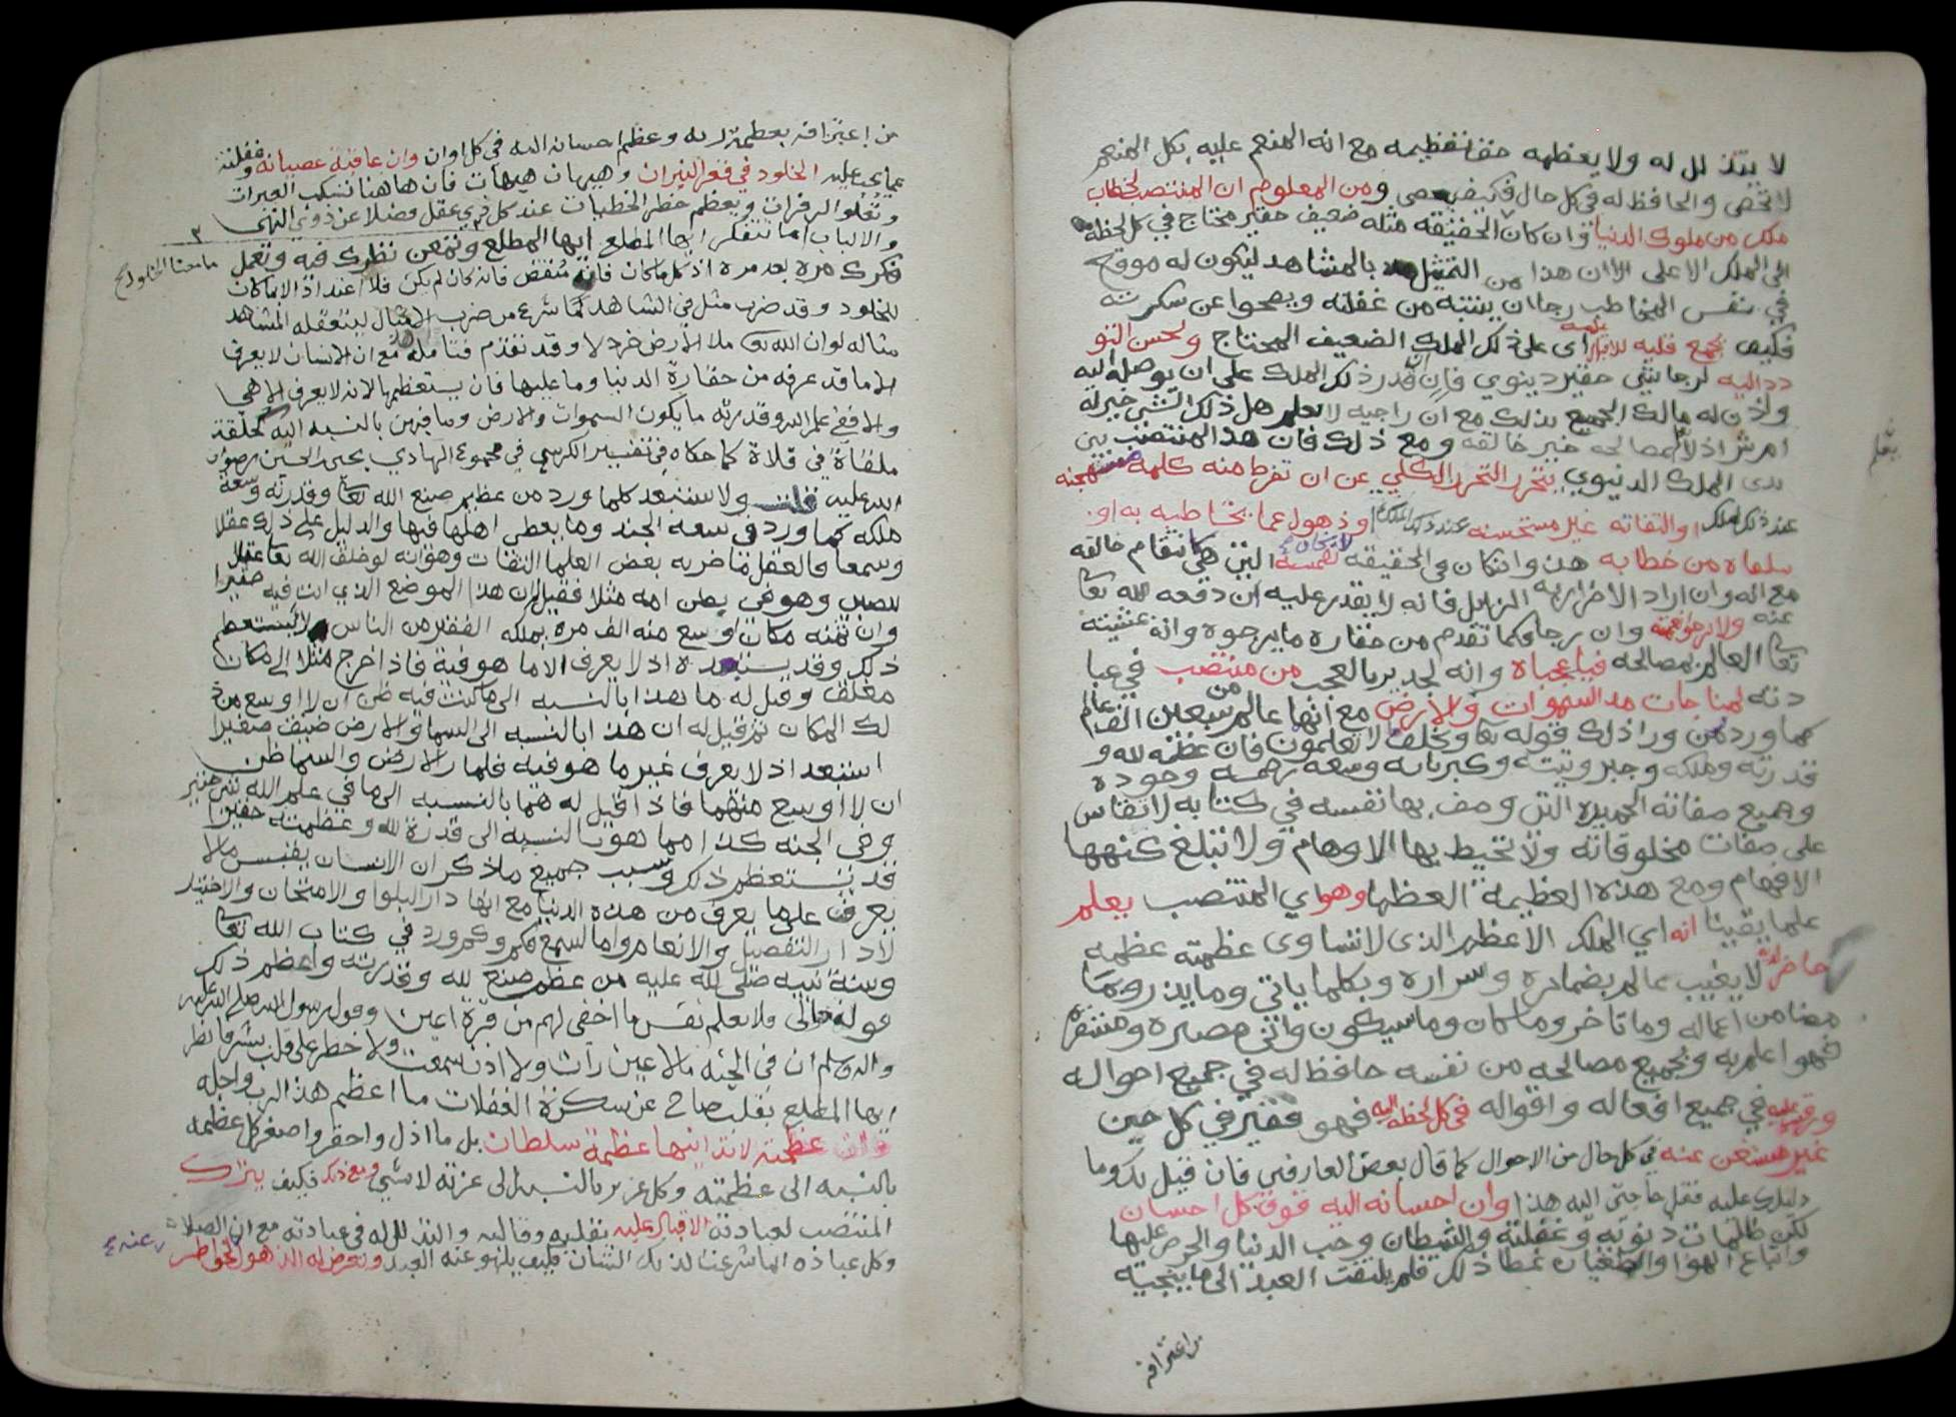 لا يتذلل له ولا يعظمه حق تعظيمه مع انه المنعم عليه بكل المنعم
لا تحصى والحافظ له في كل حال فكيف ومن المعلوم ان المنتصب لخطاب
ملك من ملوك الدنيا وان كان في الحقيقة مثله ضعيف حقير محتاج في كل لحظة
الى الملك الاعلى الا ان هذا من التمثيل بالمشاهد ليكون له موقع
في نفس المخاطب رجا ان ينتبه من غفلته ويصحوا عن سكرته
فكيف يجمع قلبه للاقبال على ذلك الملك الضعيف المحتاج ولحسن التو
دد اليه لرجا شي حقير دنيوي فان قدر ذلك الملك على ان يوصله اليه
واذن له مالك الجميع بذلك مع ان راجيه لا يعلم هل ذلك الشي خير له
ام شر اذ لا يعلم المصالحه خير خالقه ومع ذلك فان هذا المنتصب بين
يدى الملك الدنيوي يتحرر التحرر الكلي عن ان تفرط منه كلمة مستهجنه
عند ذلك الملك او التفاته غير مستحسنه عند ذلك الملك او ذهول عما يخاطبه به او
من خطابه هذا وان كان في الحقيقة التي هي كانتقام خالقه
مع انه وان اراد الاضرار به الزايل فانه لا يقدر عليه ان دفعه الله تعا
عنه وان رجا فكما تقدم من حقارة ما يرجوه وانه
تعا العالم بمصالحه فيا عجباه وانه لجدير بالعجب من منتصب في عبا
دته لمناجات السموات والارض مع انها عالم من سبعين الف عالم
كما ورد ورا ذلك قوله تعا ويخلق ما لا تعلمون فان عظمة الله و
قدرته وملكه وجبروتيته وكبريائه وسعة رحمته وجوده
وجميع صفاته الحميده التي وصف بها نفسه في كتابه لا تقاس
على صفات مخلوقاته ولا تحيط بها الاوهام ولا تبلغ كنهها
الافهام ومع هذه العظيمة العظما وهو اي المنتصب يعلم
علما يقينا انه اي الملك الاعظم الذى لا تساوى عظمته عظمه
حاضر لا يغيب عالم بضمايره واسراره وبكلما ياتي وما يذر وما
مضا من اعماله وما تاخر وما كان وما سيكون واني مصيره ومستقره
فهوا اعلم به وبجميع مصالحه من نفسه حافظ له في جميع احواله
ورقيب عليه في جميع افعاله واقواله في كل لحظة فهو فقير في كل حين
غير مستغن عنه في كل حال من الاحوال كما قال بعض العارفين فان قيل لك وما
دليلك عليه فقل حاجتي اليه هذا وان احسانه اليه فوق كل احسان
لكن ظلمات ذنوبه وغفلته والشيطان وحب الدنيا والحرص عليها
واتباع الهوا والطغيان غطا ذلك فلم يلتفت العبد الى ما ينجيه
من اعترافه
يعلم
من اعترافه بعظمة ربه وعظم احسانه اليه في كل اوان وان عاقبة عصيانه وغفلته
عما يجب عليه الخلود في قعر النيران وهيهات هيهات فان هاهنا تسكب العبرات
وتعلو الزفرات ويعظم خطر الخطيات عند كل ذي عقل فضلا عن ذوي النهى
والالباب اما تتفكر ايها المطلع ايها المطلع وتمعن نظرك فيه وتعمل
ما معنا الخلود
فكرك مره بعد مره اذ كل ما كان فانه منقض فانه كان لم يكن فلا اعتداد الا بما كان
للخلود وقد ضرب مثل في الشاهد كما شرع من ضرب الامثال ليتعقله المشاهد
مثاله لو ان الله تعا ملا الارض خردلا وقد تقدم فتامله مع ان الانسان لا يعرف
الا ما قد عرفه من حقارة الدنيا وما عليها فان يستعظمها لانه لا يعرف الا هي
والا ففي علم الله وقدرته ما يكون السموات والارض وما فيهن بالنسبه اليه كحلقة
ملقاة في فلاة كما حكاه في تفسير الكرسي في مجموع الهادي يحيى بن الحسين رضوان
الله عليه قلت ولا ستبعد كلما ورد من عظيم صنع الله تعا وقدرته وسعة
ملكه كما ورد في سعه الجنه وما يعطى اهلها فيها والدليل على ذلك عقلا
وسمعا فالعقل ما ضربه بعض العلما الثقات وهو انه لو خلق الله تعا عقل
للصبي وهو في بطن امه مثلا فقيل له ان هذا الموضع الذي انت فيه صغيرا
وان ثمنه مكان اوسع منه الف مره يملكه الفقير من الناس لا يستعظم
ذلك وقد يستبعده اذ لا يعرف الا ما هو فيه فاذا خرج مثلا الى مكان
مغلق وقيل له ما هذا بالنسبه الى ما كنت فيه ظن ان لا اوسع من ذ
لك المكان ثم قيل له ان هذا بالنسبه الى السما والارض ضيف صغيرا
استبعد اذ لا يعرف غير ما هو فيه فلما را الارض والسما ظن
ان لا اوسع منهما فاذا قيل له هما بالنسبه الى ما في علم الله شي حقير
وفي الجنه كذا مما هو بالنسبه الى قدرة الله وعظمته حقيرا
قد يستعظم ذلك وسبب جميع ما ذكر ان الانسان يقيس ما لا
يعرف على ما يعرف من هذه الدنيا مع انها دار البلوا والامتحان والاختبار
لا دار التفضيل والانعام واما السمع فكم وكم ورد في كتاب الله تعا
وسنة نبيه صلى الله عليه من عظم صنع الله وقدرته واعظم ذلك
قوله تعالى فلا تعلم نفس ما اخفى لهم من قرة اعين وقول رسول الله صلى الله عليه
واله وسلم ان في الجنه ما لا عين رات ولا اذن سمعت ولا خطر على قلب بشر فانظر
ايها المطلع بقلب صاحى عن سكرة الغفلات ما اعظم هذا الرب واجله
عظمته لا تدانيها عظمة سلطان بل ما اذل واحقر واصغر كل عظمه
بالنسبه الى عظمته وكل عزيز بالنسبه الى عزته لا شي ومع ذلك فكيف يترك
المنتصب لعبادته الاقبال عليه بقلبه وقالبه والتذلل له في عبادته مع ان الصلاة
وكل عباده انما شرعت لذلك الشان فكيف يلهو عنه العبد وتعرض له الذهول الخواطر
عنه